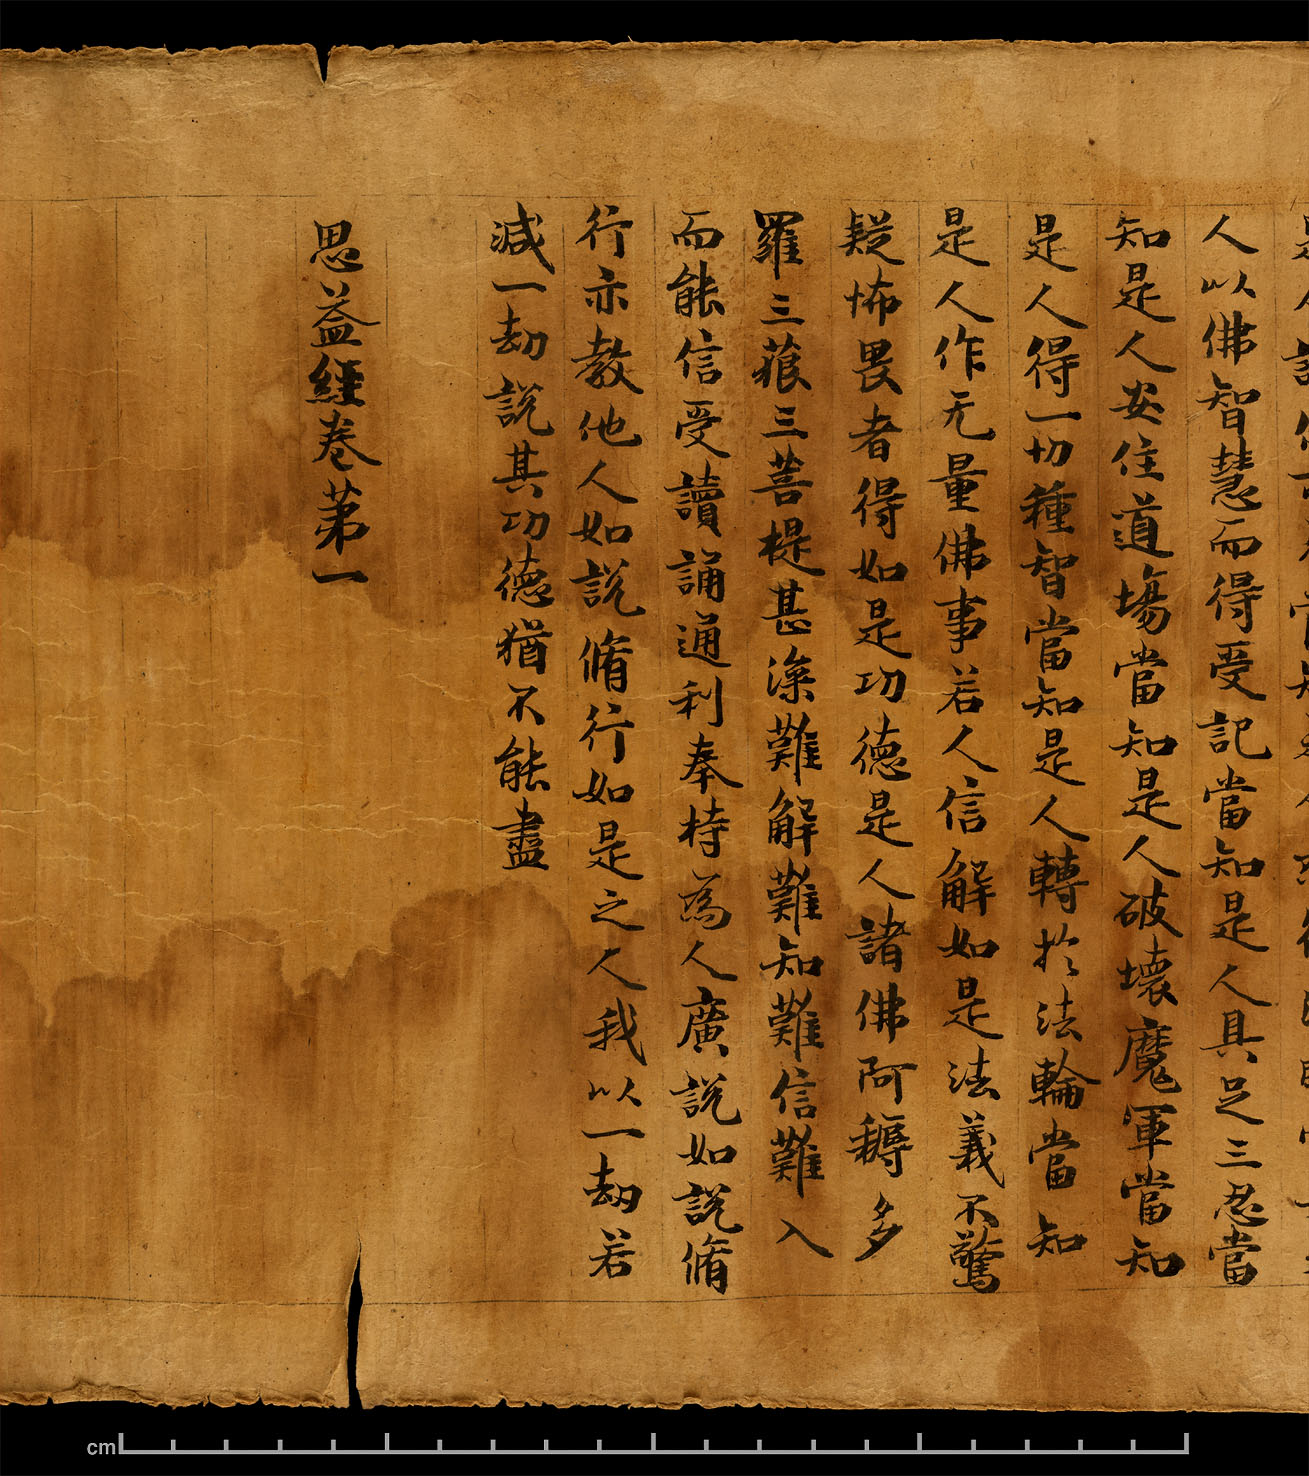 人以佛智慧而得受記當知是人具足三忍當
知是人安住道場當知是人破壞魔軍當知
是人得一切種智當知是人轉於法輪當知
是人作无量佛事若人信解如是法義不驚
疑怖畏者得如是功德是人諸佛阿耨多
羅三藐三菩提甚深難解難知難信難入
而能信受讀誦通利奉持為人廣說如說脩
行亦教他人如說脩行如是之人我以一劫若
減一劫說其功德猶不能盡
思益經卷第一
cm